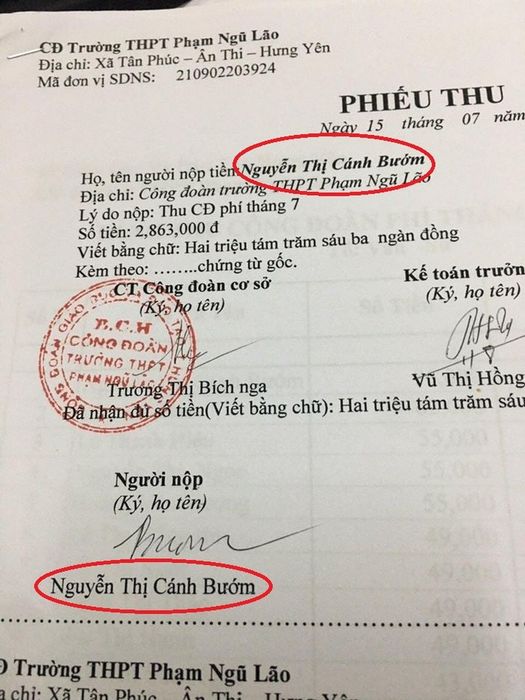 CĐ Trường THPT Phạm Ngũ Lão
Địa chỉ: Xã Tân Phúc – Ân Thi – Hưng Yên
Mã đơn vị SDNS: 210902203924
PHIẾU THU
Ngày 15 tháng 07 năm
Họ, tên người nộp tiền Nguyễn Thị Cánh Bướm
Địa chỉ: Công đoàn trường THPT Phạm Ngũ Lão
Lý do nộp: Thu CĐ phí tháng 7
Số tiền: 2,863,000 đ
Viết bằng chữ: Hai triệu tám trăm sáu ba ngàn đồng
Kèm theo: ........chứng từ gốc.
CT Công đoàn cơ sở Kế toán trưởn
(Ký, họ tên) (Ký, họ tên)
B.C.H
CÔNG ĐOÀN
TRƯỜNG THPT
PHẠM NGŨ LÃO
Trương Thị Bích nga Vũ Thị Hồng
Đã nhận đủ số tiền(Viết bằng chữ): Hai triệu tám trăm sáu
Người nộp
(Ký, họ tên)
Bướm
Nguyễn Thị Cánh Bướm
55,000
55,000
55,000
49,000
49,000
49,000
49,000
CĐ Trường THPT Phạm Ngũ Lão
a chỉ: Xã Tân Phúc – Ân Thi – Hưng Yên